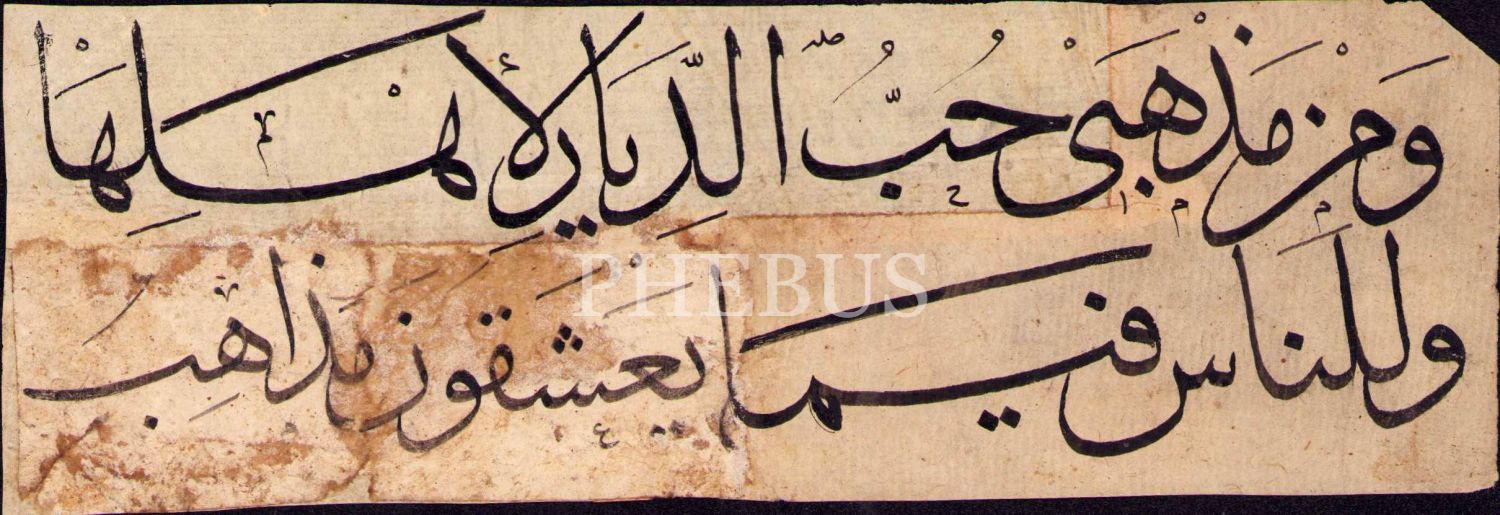 وَمِنْ مَذْهَبِى حُبُّ الدِّيَارِ لِأَهْلِهَا
وَلِلنَّاسِ فِيمَا يَعْشَقُونَ مَذَاهِبُ
PHEBUS